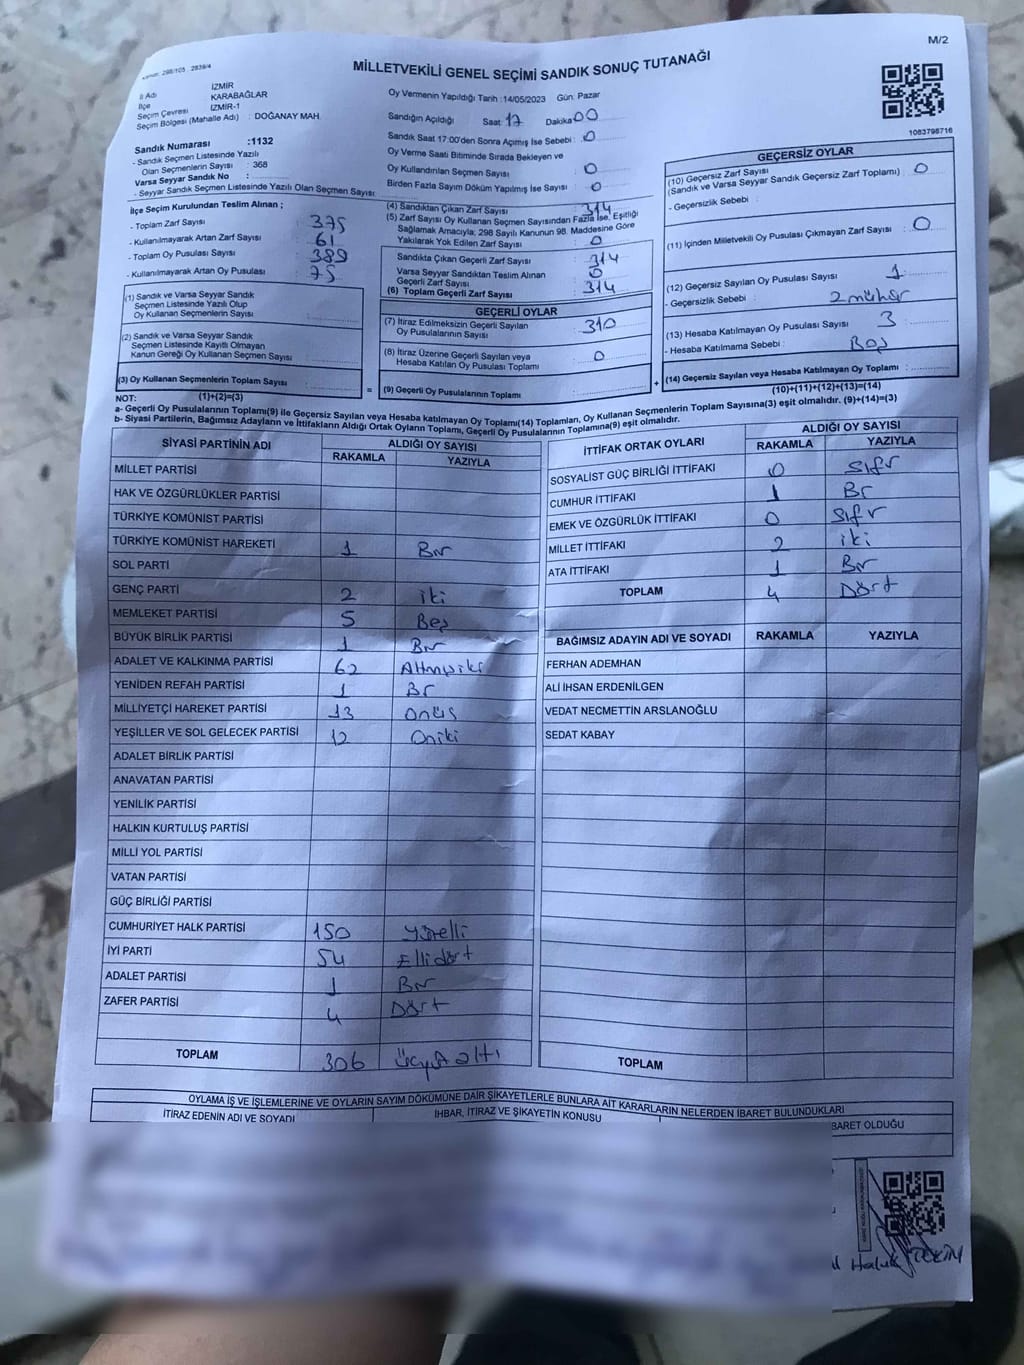 M/2
MİLLETVEKİLİ GENEL SEÇİMİ SANDIK SONUÇ TUTANAĞI
1083798716
İl Adı İZMİR
İlçe KARABAĞLAR
Seçim Çevresi İZMİR-1
Seçim Bölgesi (Mahalle Adı) : DOĞANAY MAH.
Sandık Numarası :1132
- Sandık Seçmen Listesinde Yazılı
Olan Seçmenlerin Sayısı : 368
Varsa Seyyar Sandık No :
- Seyyar Sandık Seçmen Listesinde Yazılı Olan Seçmen Sayısı:
Oy Vermenin Yapıldığı Tarih :14/05/2023 Gün: Pazar
Sandığın Açıldığı Saat: 17 Dakika 00
Sandık Saat 17:00'den Sonra Açılmış İse Sebebi : 0
Oy Verme Saati Bitiminde Sırada Bekleyen ve
Oy Kullandırılan Seçmen Sayısı : 0
Birden Fazla Sayım Döküm Yapılmış İse Sayısı : 0
İlçe Seçim Kurulundan Teslim Alınan ;
- Toplam Zarf Sayısı : 375
- Kullanılmayarak Artan Zarf Sayısı : 61
- Toplam Oy Pusulası Sayısı : 389
- Kullanılmayarak Artan Oy Pusulası : 75
(1) Sandık ve Varsa Seyyar Sandık
Seçmen Listesinde Yazılı Olup
Oy Kullanan Seçmenlerin Sayısı :
(2) Sandık ve Varsa Seyyar Sandık
Seçmen Listesinde Kayıtlı Olmayan
Kanun Gereği Oy Kullanan Seçmen Sayısı :
(3) Oy Kullanan Seçmenlerin Toplam Sayısı :
(1)+(2)=(3)
(4) Sandıktan Çıkan Zarf Sayısı : 314
(5) Zarf Sayısı Oy Kullanan Seçmen Sayısından Fazla İse, Eşitliği
Sağlamak Amacıyla; 298 Sayılı Kanunun 98. Maddesine Göre
Yakılarak Yok Edilen Zarf Sayısı : 0
Sandıkta Çıkan Geçerli Zarf Sayısı : 314
Varsa Seyyar Sandıktan Teslim Alınan
Geçerli Zarf Sayısı : 0
(6) Toplam Geçerli Zarf Sayısı : 314
GEÇERLİ OYLAR
(7) İtiraz Edilmeksizin Geçerli Sayılan
Oy Pusulalarının Sayısı : 310
(8) İtiraz Üzerine Geçerli Sayılan veya
Hesaba Katılan Oy Pusulası Toplamı : 0
= (9) Geçerli Oy Pusulalarının Toplamı :
GEÇERSİZ OYLAR
(10) Geçersiz Zarf Sayısı
(Sandık ve Varsa Seyyar Sandık Geçersiz Zarf Toplamı) : 0
- Geçersizlik Sebebi :
(11) İçinden Milletvekili Oy Pusulası Çıkmayan Zarf Sayısı : 0
(12) Geçersiz Sayılan Oy Pusulası Sayısı : 1
- Geçersizlik Sebebi : 2 mühür
(13) Hesaba Katılmayan Oy Pusulası Sayısı : 3
- Hesaba Katılmama Sebebi : Boş
+ (14) Geçersiz Sayılan veya Hesaba Katılmayan Oy Toplamı :
(10)+(11)+(12)+(13)=(14)
NOT:
a- Geçerli Oy Pusulalarının Toplamı(9) ile Geçersiz Sayılan veya Hesaba katılmayan Oy Toplamı(14) Toplamları, Oy Kullanan Seçmenlerin Toplam Sayısına(3) eşit olmalıdır. (9)+(14)=(3)
b- Siyasi Partilerin, Bağımsız Adayların ve İttifakların Aldığı Ortak Oyların Toplamı, Geçerli Oy Pusulalarının Toplamına(9) eşit olmalıdır.
SİYASİ PARTİNİN ADI ALDIĞI OY SAYISI
RAKAMLA YAZIYLA
MİLLET PARTİSİ
HAK VE ÖZGÜRLÜKLER PARTİSİ
TÜRKİYE KOMÜNİST PARTİSİ
TÜRKİYE KOMÜNİST HAREKETİ 1 Bir
SOL PARTİ
GENÇ PARTİ 2 iki
MEMLEKET PARTİSİ 5 Beş
BÜYÜK BİRLİK PARTİSİ 1 Bir
ADALET VE KALKINMA PARTİSİ 62 Altmışiki
YENİDEN REFAH PARTİSİ 1 Bir
MİLLİYETÇİ HAREKET PARTİSİ 13 Onüç
YEŞİLLER VE SOL GELECEK PARTİSİ 12 Oniki
ADALET BİRLİK PARTİSİ
ANAVATAN PARTİSİ
YENİLİK PARTİSİ
HALKIN KURTULUŞ PARTİSİ
MİLLİ YOL PARTİSİ
VATAN PARTİSİ
GÜÇ BİRLİĞİ PARTİSİ
CUMHURİYET HALK PARTİSİ 150 Yüzelli
İYİ PARTİ 54 Ellidört
ADALET PARTİSİ 1 Bir
ZAFER PARTİSİ 4 Dört
TOPLAM 306 Üçyüzaltı
İTTİFAK ORTAK OYLARI ALDIĞI OY SAYISI
RAKAMLA YAZIYLA
SOSYALİST GÜÇ BİRLİĞİ İTTİFAKI 0 Sıfır
CUMHUR İTTİFAKI 1 Bir
EMEK VE ÖZGÜRLÜK İTTİFAKI 0 Sıfır
MİLLET İTTİFAKI 2 iki
ATA İTTİFAKI 1 Bir
TOPLAM 4 Dört
BAĞIMSIZ ADAYIN ADI VE SOYADI RAKAMLA YAZIYLA
FERHAN ADEMHAN
ALİ İHSAN ERDENİLGEN
VEDAT NECMETTİN ARSLANOĞLU
SEDAT KABAY
TOPLAM
OYLAMA İŞ VE İŞLEMLERİNE VE OYLARIN SAYIM DÖKÜMÜNE DAİR ŞİKAYETLERLE BUNLARA AİT KARARLARIN NELERDEN İBARET BULUNDUKLARI
İTİRAZ EDENİN ADI VE SOYADI İHBAR, İTİRAZ VE ŞİKAYETİN KONUSU BARET OLDUĞU
Haluk